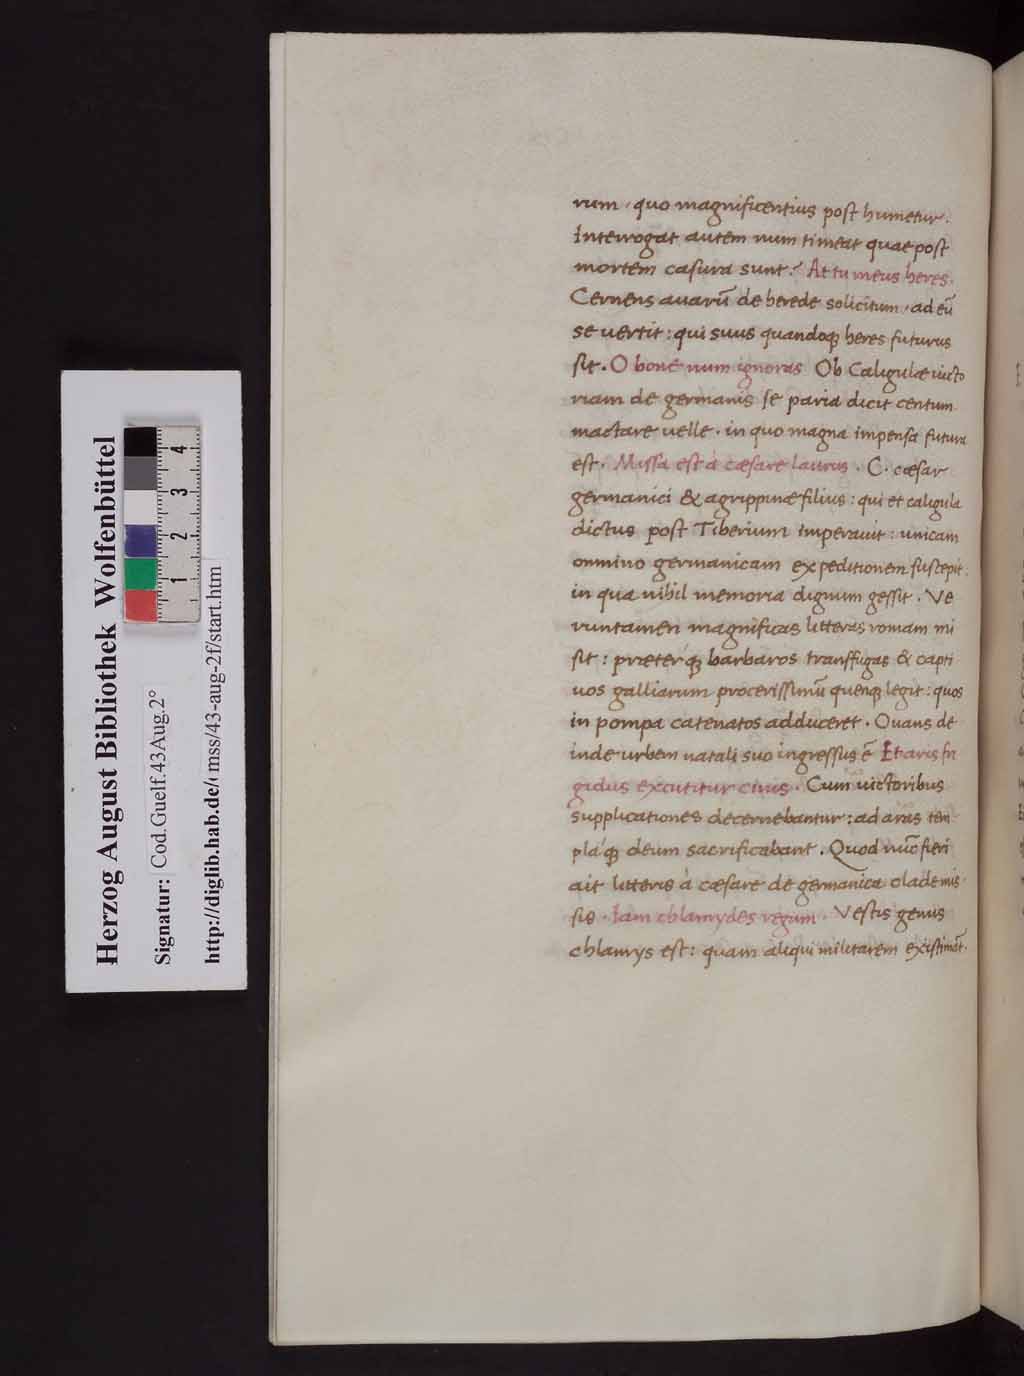 rum, quo magnificentius post humetur.
Interrogat autem num timeat quae post
mortem casura sunt? At tu meus heres.
Cernens auarū de herede solicitum, ad eū
se uertit: qui suus quandoq; heres futurus
sit. O bone num ignoras Ob Caligulæ uicto
riam de germanis se paria dicit centum
mactare uelle. in quo magna impensa futura
est. Missa est à cæsare laurus. C. cæsar
germanici & agrippinæ filius: qui et caligula
dictus post Tiberium imperauit: unicam
omnino germanicam expeditionem suscepit:
in qua nihil memoria dignum gessit. Ve
runtamen magnificas litteras romam mi
sit: præterq; barbaros transfugas & capti
uos galliarum procerissimū quenq; legit: quos
in pompa catenatos adduceret. Ouans de
inde urbem natali suo ingressus ē Et aris fri
gidus excutitur cinis. Cum uictoribus
supplicationes decernebantur: ad aras tem
plaq; deum sacrificabant. Quod nūc fieri
ait litteris à cæsare de germanica clade mis
sis. Iam chlamydes regum. Vestis genus
chlamys est: quam aliqui militarem existimāt.
Herzog August Bibliothek Wolfenbüttel
Signatur: Cod.Guelf.43Aug.2°
http://diglib.hab.de/ mss/43-aug-2f/start.htm
1 2 3 4